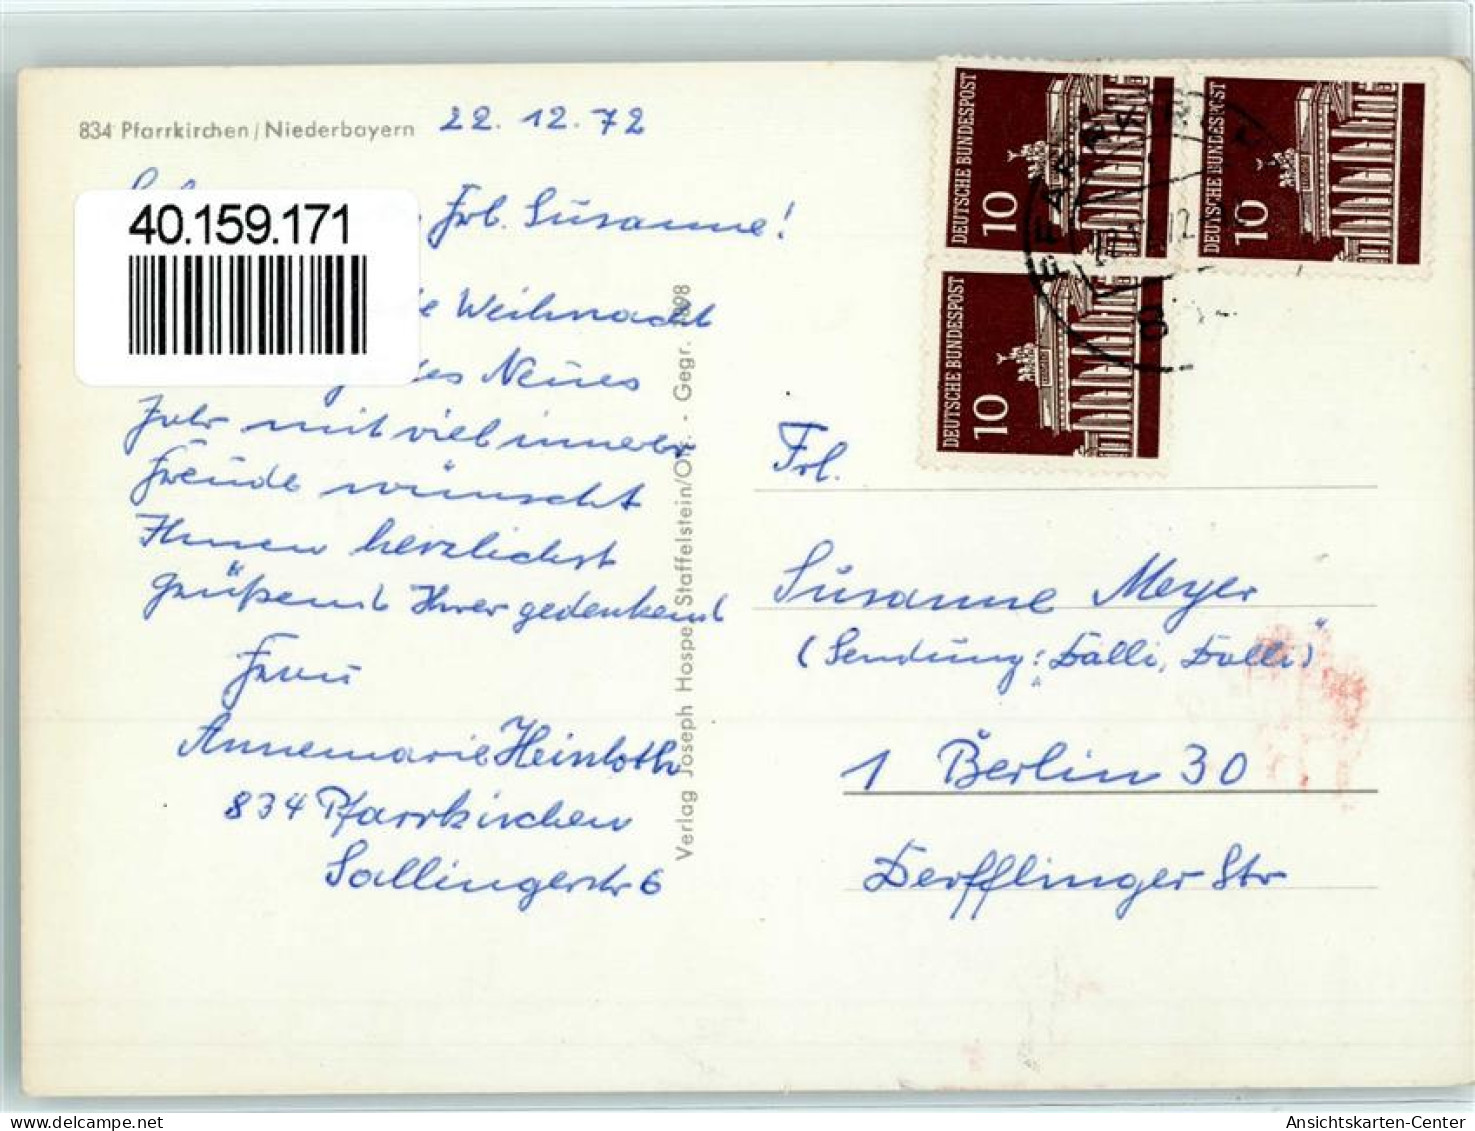 834 Pfarrkirchen / Niederbayern
22. 12. 72
40.159.171
Frl. Susanne!
Weihnacht
Neues
Jahr mit viel innerer
Freude wünscht
Ihnen herzlichst
grüßend Ihrer gedenkend
Frau
Annemarie Heinloth
834 Pfarrkirchen
Sallingerstr 6
Verlag Joseph Hospe Staffelstein/Ofr. - Gegr. 1898
DEUTSCHE BUNDESPOST
10
DEUTSCHE BUNDESPOST
10
DEUTSCHE BUNDESPOST
10
Frl.
Susanne Meyer
(Sendung: „Dalli, Dalli“)
1 Berlin 30
Derfflinger Str
Ansichtskarten-Center